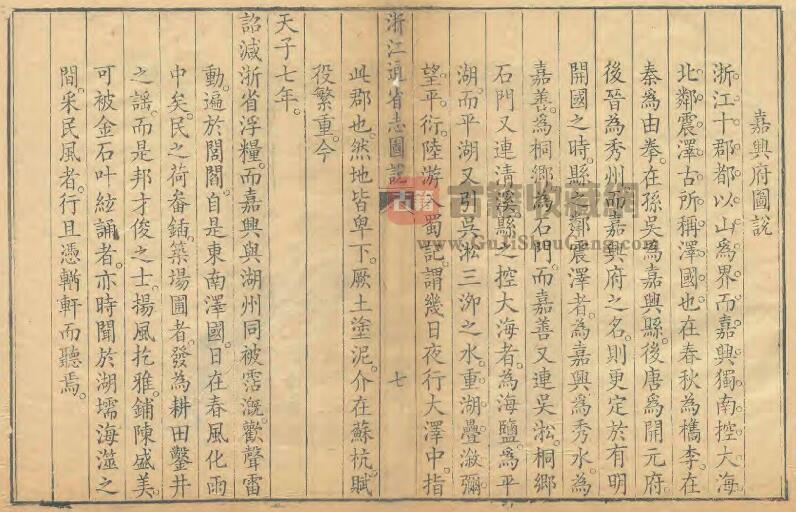 嘉興府圖說
浙江十郡都以山為界而嘉興獨南控大海
北鄰震澤古所稱澤國也在春秋為檇李在
秦為由拳在孫吳為嘉興縣後唐為開元府
後晉為秀州而嘉興府之名則更定於有明
開國之時縣之鄰震澤者為嘉興為秀水為
嘉善為桐鄉為石門而嘉善又連吳淞桐鄉
石門又連清溪縣之控大海者為海鹽為平
湖而平湖又引吳淞三泖之水重湖疊漵彌
望平衍陸游入蜀記謂幾日夜行大澤中指
浙江通省志圖說
七
此郡也然地皆卑下厥土塗泥介在蘇杭賦
役繁重今
天子七年
詔減浙省浮糧而嘉興與湖州同被霑溉歡聲雷
動遍於閭閻自是東南澤國日在春風化雨
中矣民之荷畚鍤築場圃者發為耕田鑿井
之謠而是邦才俊之士揚風扢雅鋪陳盛美
可被金石叶絃誦者亦時聞於湖壖海澨之
間采民風者行且憑輶軒而聽焉
古籍收藏網
www.GuJiShouCang.com